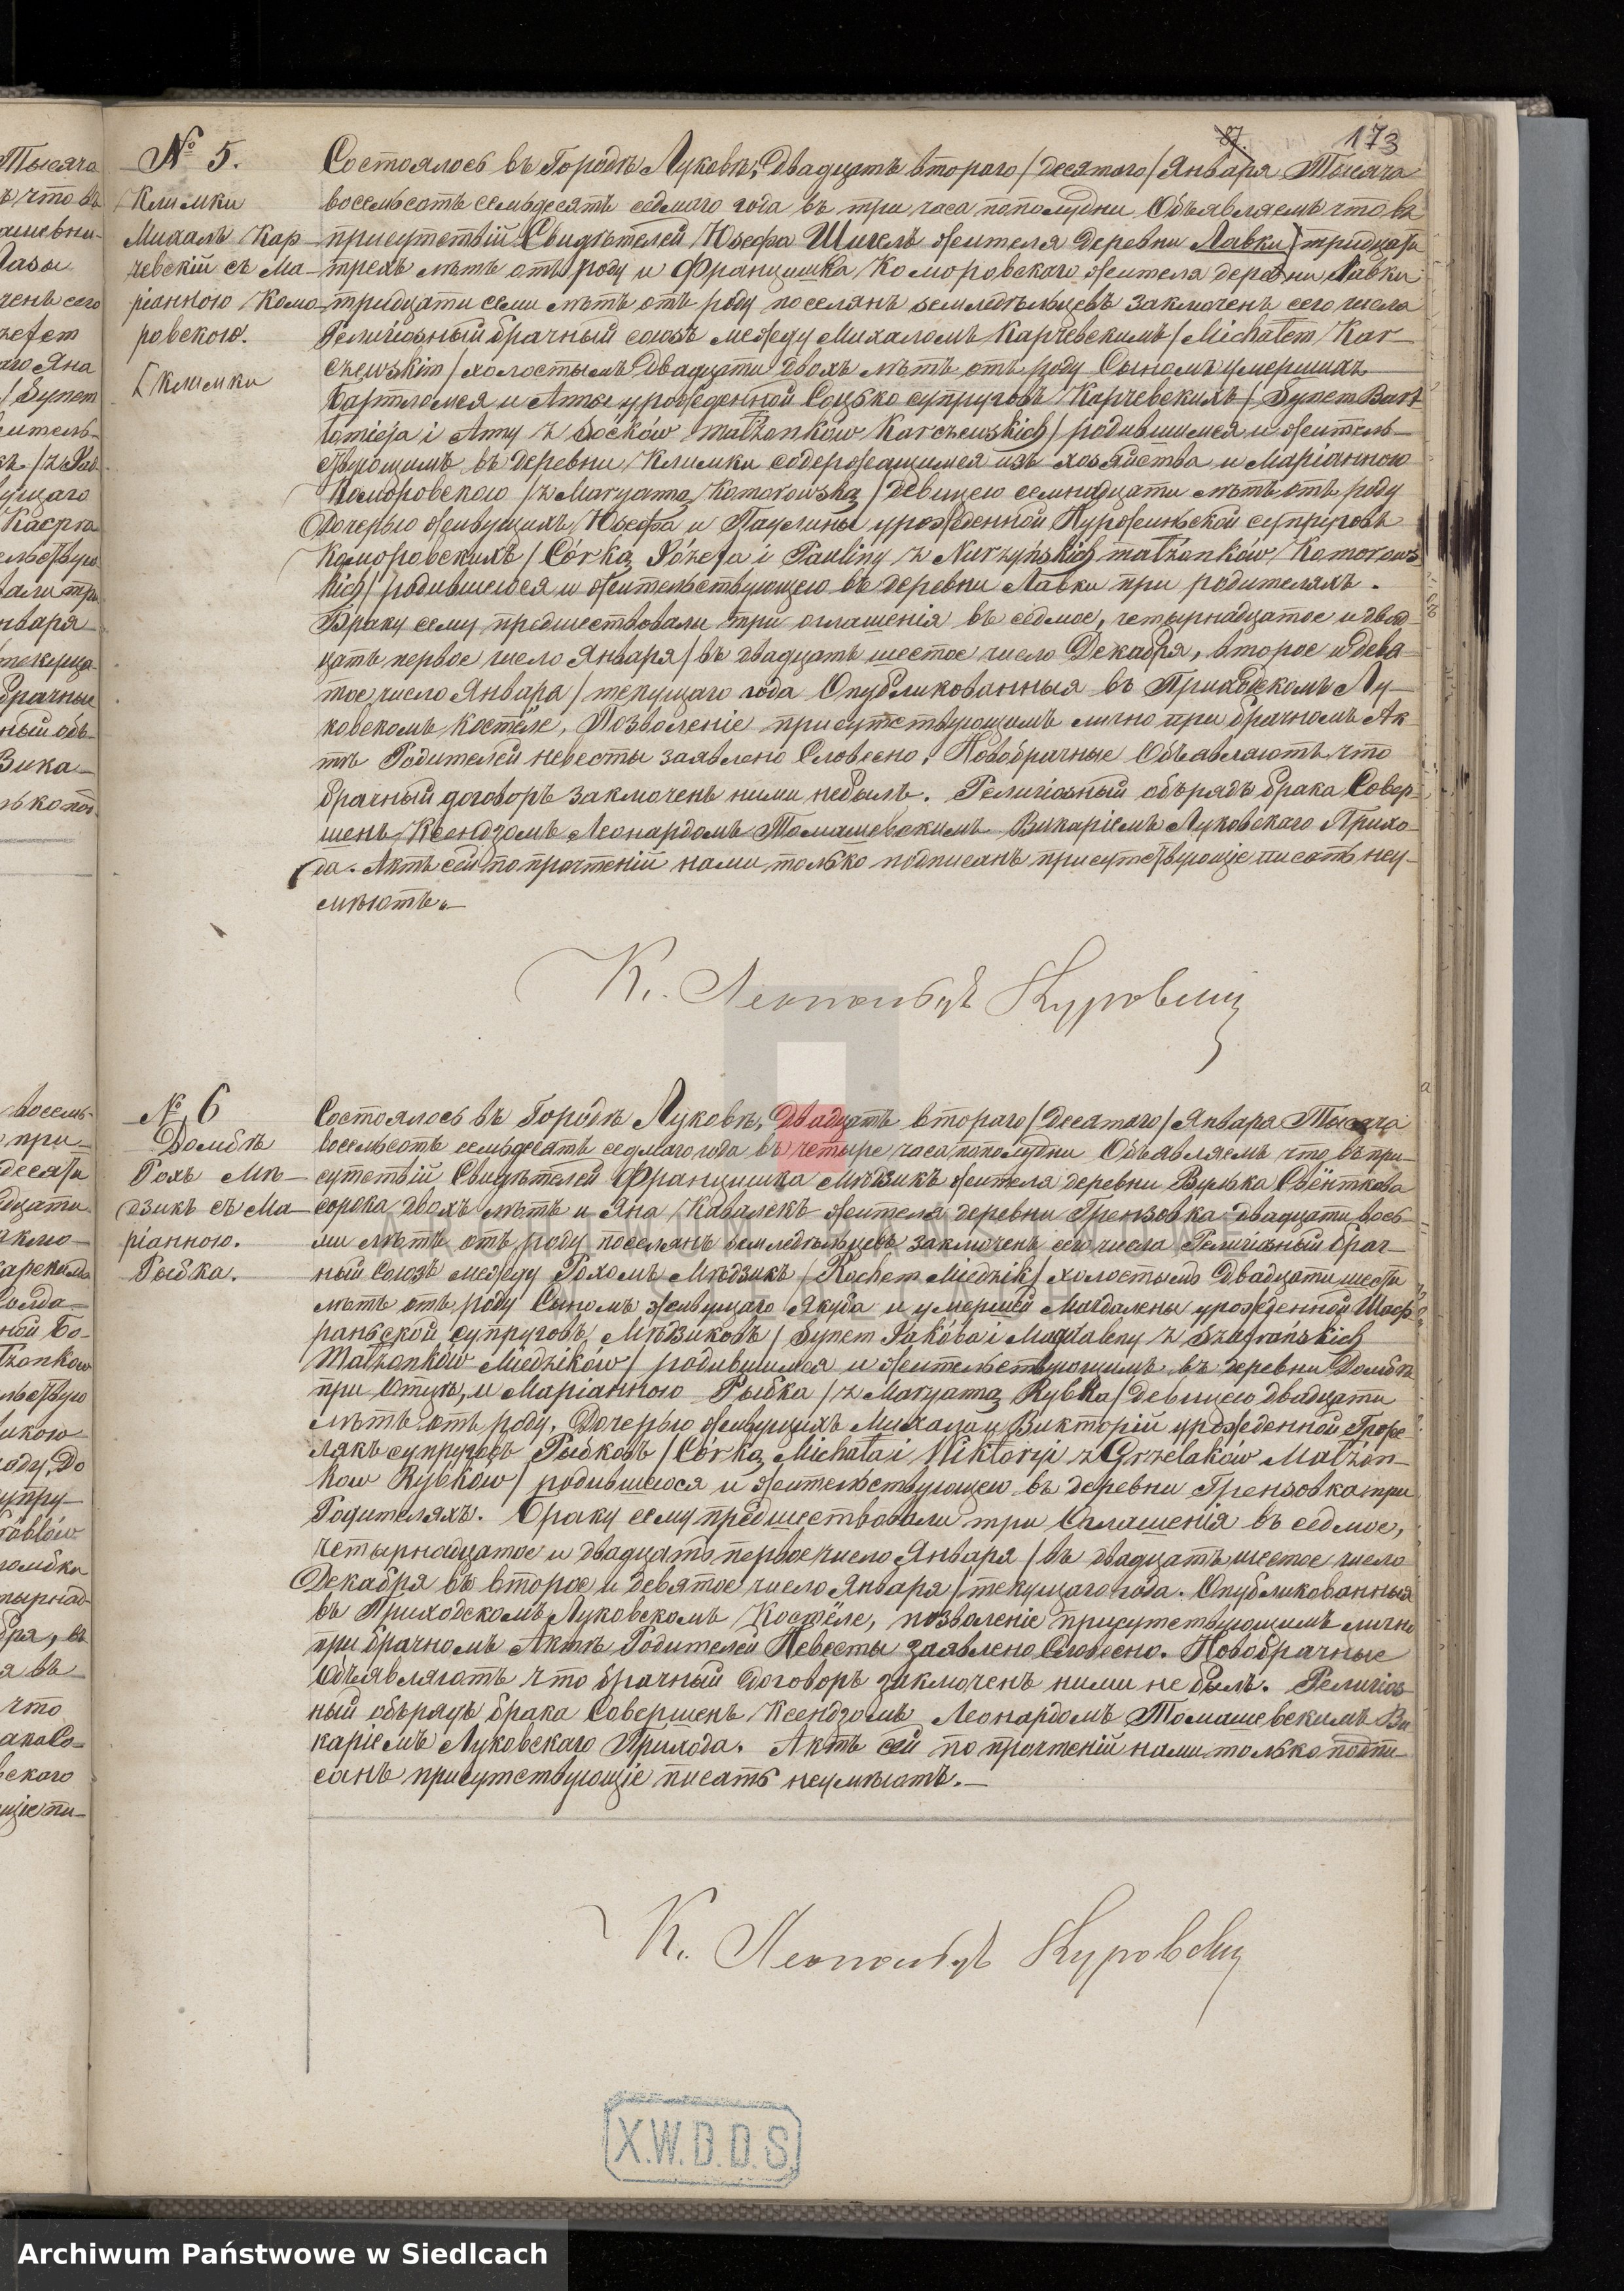 173
№ 5.
Климки
Михалъ Кар-
чевскій съ Ма-
ріанною Комо-
ровскою.
[Климки
Состоялось въ Городѣ Луковѣ, Двадцать втораго /десятаго/ Января Тысяча
восемьсотъ семьдесятъ седмаго года въ три часа пополудни Объявляемъ что въ
присутствіи Свидѣтелей Юзефа Шигель жителя деревни Лавки тридцати
трехъ лѣтъ отъ роду и Францишка Коморовскаго жителя деревни Лавки
тридцати семи лѣтъ отъ роду поселянъ земледѣльцевъ заключенъ сего числа
Религіозный брачный союзъ между Михаломъ Карчевскимъ /Michałem Kar-
czewskim/ холостымъ Двадцати двохъ лѣтъ отъ роду Сыномъ умершихъ
Бартломея и Анны урожденной Соцько супруговъ Карчевскихъ /Synem Bart-
łomieja i Anny z Soćków małżonków Karczewskich/ родившимся и житель-
ствующимъ въ деревни Климки содержащимся изъ хозяйства и Маріанною
Коморовскою /z Maryanną Komorowską/ Девицею семнадцати лѣтъ отъ роду
Дочерью живущихъ Юзефа и Паулины урожденной Нуржинской супруговъ
Коморовскихъ /Córką Józefa i Pauliny z Nurzyńskich małżonków Komorows-
kich/ родившеюся и жительствующею въ деревни Лавки при родителяхъ.
Браку сему предшествовали три оглашенія въ седмое, четырнадцатое и двад-
цать первое число Января /въ двадцать шестое число Декабря, второе и девя-
тое число Января/ текущаго года Опубликованныя въ Приходскомъ Лу-
ковскомъ Костёле, Позволеніе присутствующимъ лично при брачномъ Ак-
тѣ Родителей невесты заявлено Словесно, Новобрачные Объявляютъ что
брачный договоръ заключенъ ними небылъ. Религіозный обърядъ брака Совер-
шенъ Ксендзомъ Леонардомъ Томашевскимъ Викаріемъ Луковскаго Прихо-
да. Актъ сей по прочтеніи нами только подписанъ присутствующіе писать неу-
мѣютъ.—
К. Леопольдъ Куровскій
№ 6
Домбѣ
Рохъ Мѣ-
дзикъ съ Ма-
ріанною
Рыбка.
Состоялось въ Городѣ Луковѣ, Двадцать втораго /Десятаго/ Января Тысяча
восемьсотъ семьдесятъ седмаго года въ четыре часа пополудни Объявляемъ что въ при-
сутствіи Свидѣтелей Францишка Мѣдзикъ жителя деревни Вулька Свёнткова
сорока двохъ лѣтъ и Яна Кавалекъ жителя деревни Грензовка двадцати вось-
ми лѣтъ отъ роду поселянъ земледѣльцевъ заключенъ сего числа Религіозный брач-
ный Союзъ между Рохомъ Мѣдзикъ /Rochem Miedzik/ холостымъ Двадцати шести
лѣтъ отъ роду Сыномъ живущаго Якуба и умершей Магдалены урожденной Шаф-
раньской супруговъ Мѣдзиковъ /Synem Jakóba i Magdaleny z Szafrańskich
Małżonków Miedzików/ родившимся и жительствующимъ въ деревни Домбѣ
при Отцу, и Маріанною Рыбка /z Maryanną Rybka/ девицею двадцати
лѣтъ отъ роду, Дочерью живущихъ Михала и Викторіи урожденной Гроже-
лякъ супруговъ Рыбковъ /Córką Michała i Wiktoryi z Grzelaków Małżon-
ków Rybków/ родившеюся и жительствующею въ деревни Грензовка при
Родителяхъ. Браку сему предшествовали три Оглашенія въ седмое,
четырнадцатое и двадцать первое число Января /въ двадцать шестое число
Декабря въ второе и девятое число Января/ текущаго года. Опубликованныя
въ Приходскомъ Луковскомъ Костёле, позволеніе присутствующимъ лично
при брачномъ Актѣ Родителей Невесты заявлено Словесно. Новобрачные
Объявляютъ что брачный Договоръ заключенъ ними не былъ. Религіоз-
ный обърядъ брака Совершенъ Ксендзомъ Леонардомъ Томашевскимъ Ви-
каріемъ Луковскаго Прихода. Актъ сей по прочтеніи нами только подпи-
санъ присутствующіе писать неумѣютъ.—
К. Леопольдъ Куровскій
X.W.D.D.S.
Archiwum Państwowe w Siedlcach